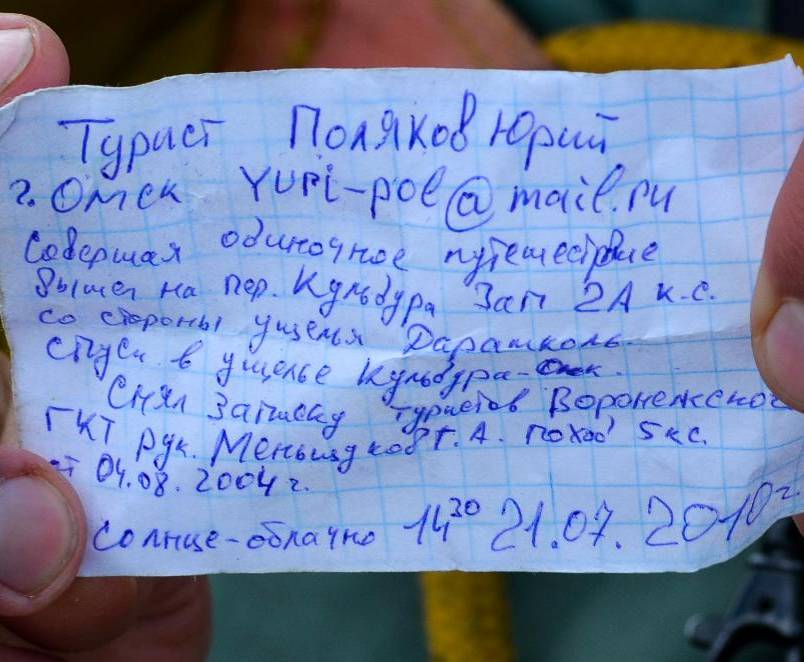 Турист Поляков Юрий
г. Омск Yuri-pol@mail.ru
Совершая одиночное путешествие
вышел на пер. Кульбура Зап 2А к.с.
со стороны ущелья Дарашколь.
Спуск в ущелье Кульбура-
Снял записку туристов Воронежского
ГКТ рук. Г.А. поход 5 к.с.
от 04.08.2004 г.
солнце-облачно 14³⁰ 21.07.2010 г.